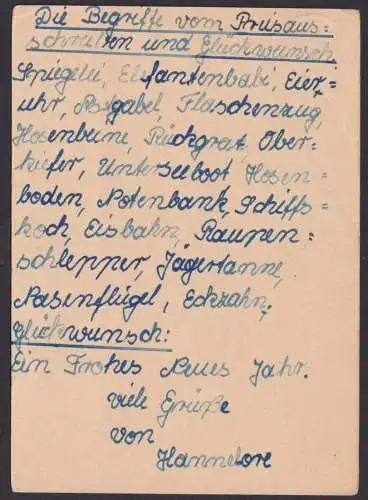 Die Begriffe vom Preisaus=
schreiben und Glückwunsch
Spiegelei, Elefantenbabi, Eier=
uhr, Astgabel, Flaschenzug,
Hosenbeine, Rückgrat, Ober=
kiefer, Unterseeboot Hosen=
boden, Notenbank, Schiffs=
koch, Eisbahn, Raupen=
schlepper, Jägertanne,
Nasenflügel, Eckzahn,
Glückwunsch:
Ein Frohes Neues Jahr.
viele Grüße
von
Hannelore